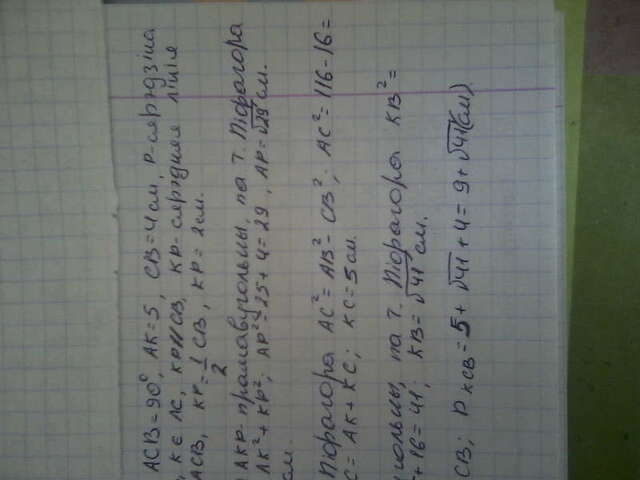 ACB=90°, AK=5, CB=4см, P-сярэдзіна
, K∈AC, KP∥CB, KP-сярэдняя лінія
ACB, KP=1/2 CB, KP=2см.
AKP-прамавугольны, па т. Піфагора
AK²+KP²; AP²=25+4=29, AP=√29см.
см.
Піфагора AC²=AB²-CB²; AC²=116-16=
C=AK+KC; KC=5см.
гольны, па т. Піфагора KB²=
+16=41; KB=√41 см.
CB; P KCB=5+√41+4=9+√41(см)